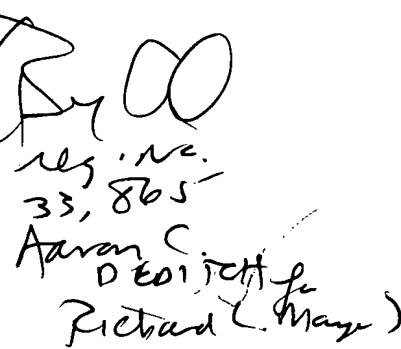 By
reg. No.
33,865
Aaron C.
DEDITCH for
Richard L. Mayer)